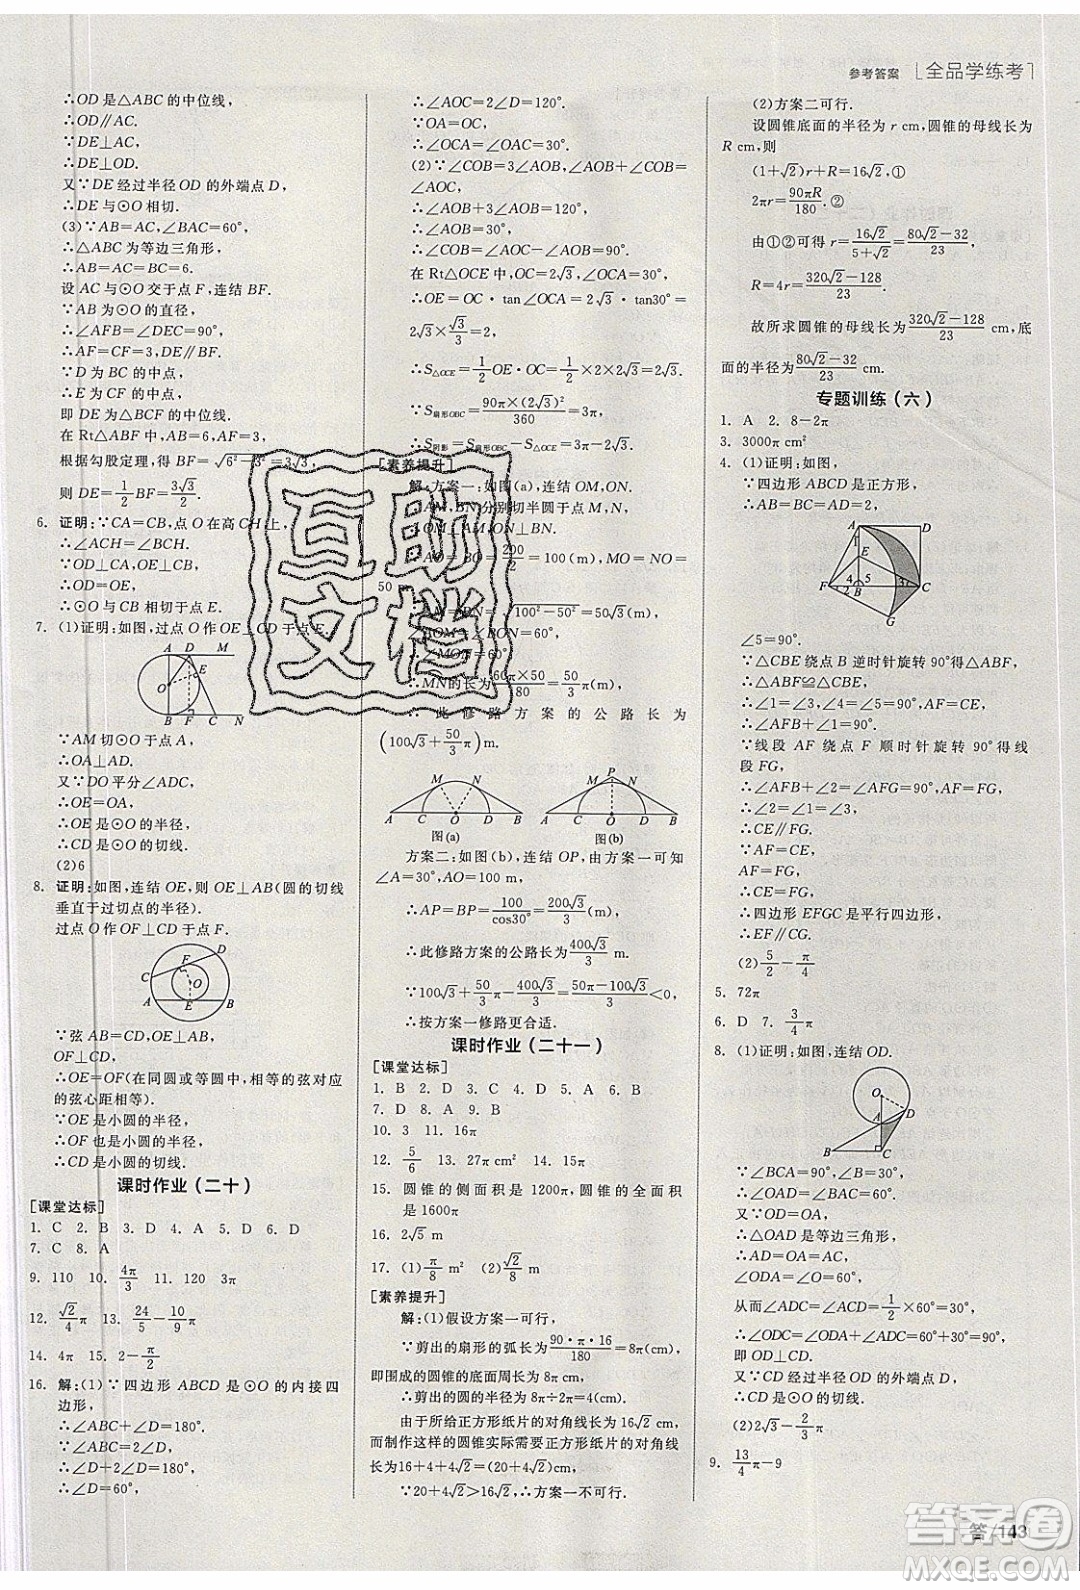 参考答案 [全品学练考]
∴OD是△ABC的中位线,
∴OD∥AC.
∵DE⊥AC,
∴DE⊥OD.
又∵DE经过半径OD的外端点D,
∴DE与⊙O相切.
(3)∵AB=AC,∠BAC=60°,
∴△ABC为等边三角形,
∴AB=AC=BC=6.
设AC与⊙O交于点F,连结BF.
∵AB为⊙O的直径,
∴∠AFB=∠DEC=90°,
∴AF=CF=3,DE∥BF.
∵D为BC的中点,
∴E为CF的中点,
即DE为△BCF的中位线.
在Rt△ABF中,
根据勾股定理,得BF=√(6²-3²)=3√3,
则DE=1/2 BF=3√3/2.
6. 证明:∵CA=CB,点O在高CH上,
∴∠ACH=∠BCH.
∵OD⊥CA,OE⊥CB,
∴OD=OE,
∴⊙O与CB相切于点E.
7. (1)证明:如图,过点O作OE⊥CD于点E.
A D M E O B F C N
∵AM切⊙O于点A,
∴OA⊥AD.
又∵DO平分∠ADC,
∴OE=OA,
∴OE是⊙O的半径,
∴CD是⊙O的切线.
(2)6
8. 证明:如图,连结OE,则OE⊥AB(圆的切线
垂直于过切点的半径).
过点O作OF⊥CD于点F.
C F D O A E B
∵弦AB=CD,OE⊥AB,
OF⊥CD,
∴OE=OF(在同圆或等圆中,相等的弦对应
的弦心距相等).
∵OE是小圆的半径,
∴OF也是小圆的半径,
∴CD是小圆的切线.
课时作业(二十)
[课堂达标]
1. C 2. B 3. D 4. A 5. D 6. D
7. C 8. A
9. 110 10. 4π/3 11. 120 3π
12. √2/4 π 13. 24/5-10/9 π
14. 4π 15. 2-π/2
16. 解:(1)∵四边形ABCD是⊙O的内接四
边形,
∴∠ABC+∠D=180°.
∵∠ABC=2∠D,
∴∠D+2∠D=180°,
∴∠D=60°,
∴∠AOC=2∠D=120°.
∵OA=OC,
∴∠OCA=∠OAC=30°.
(2)∵∠COB=3∠AOB,∠AOC=∠COB+
∠AOC,
∴∠AOC=4∠AOB=120°,
∴∠AOB=30°,
∴∠COB=∠AOC-∠AOB=90°.
在Rt△OCE中,OC=2√3,∠OCA=30°,
∴OE=OC·tan∠OCA=2√3·tan30°=
2√3×√3/3=2,
∴S△OCE=1/2 OE·OC=1/2×2×2√3=2√3.
∵S扇形OBC=90π×(2√3)²/360=3π,
∴S阴影=S扇形OBC-S△OCE=3π-2√3.
[素养提升]
解:方案一:如图(a),连结OM,ON.
∵AM,BN分别切半圆于点M,N,
∴OM⊥AM,ON⊥BN.
∵AO=BO=200/2=100(m),MO=NO=
50 m,
∴AM=BN=√(100²-50²)=50√3(m),
∠AOM=∠BON=60°,
∴∠MON=60°,
∴MN的长为60π×50/180=50/3 π(m),
∴此修路方案的公路长为
(100√3+50/3 π) m.
M N A C O D B 图(a)
P M N A C O D B 图(b)
方案二:如图(b),连结OP,由方案一可知
∠A=30°,AO=100 m,
∴AP=BP=100/cos30°=200√3/3(m),
∴此修路方案的公路长为400√3/3 m.
∵100√3+50π/3-400√3/3=50π-100√3/3<0,
∴按方案一修路更合适.
课时作业(二十一)
[课堂达标]
1. B 2. D 3. C 4. D 5. A 6. B
7. D 8. A 9. B
10. 3 11. 16π
12. 5/6 13. 27π cm² 14. 15π
15. 圆锥的侧面积是1200π,圆锥的全面积
是1600π
16. 2√5 m
17. (1)π/8 m² (2)√2/8 m
[素养提升]
解:(1)假设方案一可行,
∵剪出的扇形的弧长为90·π·16/180=8π(cm),
即围成的圆锥的底面周长为8π cm,
∴剪出的圆的直径为8π÷2π=4(cm).
由于所给正方形纸片的对角线长为16√2 cm,
而制作这样的圆锥实际需要正方形纸片的对角线
长为16+4+4√2=(20+4√2)cm,
∵20+4√2>16√2,∴方案一不可行.
(2)方案二可行.
设圆锥底面的半径为r cm,圆锥的母线长为
R cm,则
(1+√2)r+R=16√2,①
2πr=90πR/180.②
由①②可得r=16√2/(5+√2)=(80√2-32)/23,
R=4r=(320√2-128)/23.
故所求圆锥的母线长为(320√2-128)/23 cm,底
面的半径为(80√2-32)/23 cm.
专题训练(六)
1. A 2. 8-2π
3. 3000π cm²
4. (1)证明:如图,
∵四边形ABCD是正方形,
A D 1 E F 4 5 3 C 2 B G
∠5=90°.
∵△CBE绕点B逆时针旋转90°得△ABF,
∴△ABF≌△CBE,
∴∠1=∠3,∠4=∠5=90°,AF=CE,
∴∠AFB+∠1=90°.
∵线段AF绕点F顺时针旋转90°得线
段FG,
∴∠AFB+∠2=∠AFG=90°,AF=FG,
∴∠2=∠1=∠3,
∴CE∥FG.
∵AF=CE,
AF=FG,
∴CE=FG,
∴四边形EFGC是平行四边形,
∴EF∥CG.
(2)5/2-π/4
5. 72π
6. D 7. 3/4 π
8. (1)证明:如图,连结OD.
O A D B C
∵∠BCA=90°,∠B=30°,
∴∠OAD=∠BAC=60°.
又∵OD=OA,
∴△OAD是等边三角形,
∴AD=OA=AC,
∠ODA=∠O=60°,
从而∠ADC=∠ACD=1/2∠OAD=30°,
∴∠ODC=∠ODA+∠ADC=60°+30°=90°,
即OD⊥CD.
∴CD是⊙O的切线.
(2)2√3-2/3 π
9. 13/4 π-9
互助
文档
答/143
答案圈
MXQE.COM